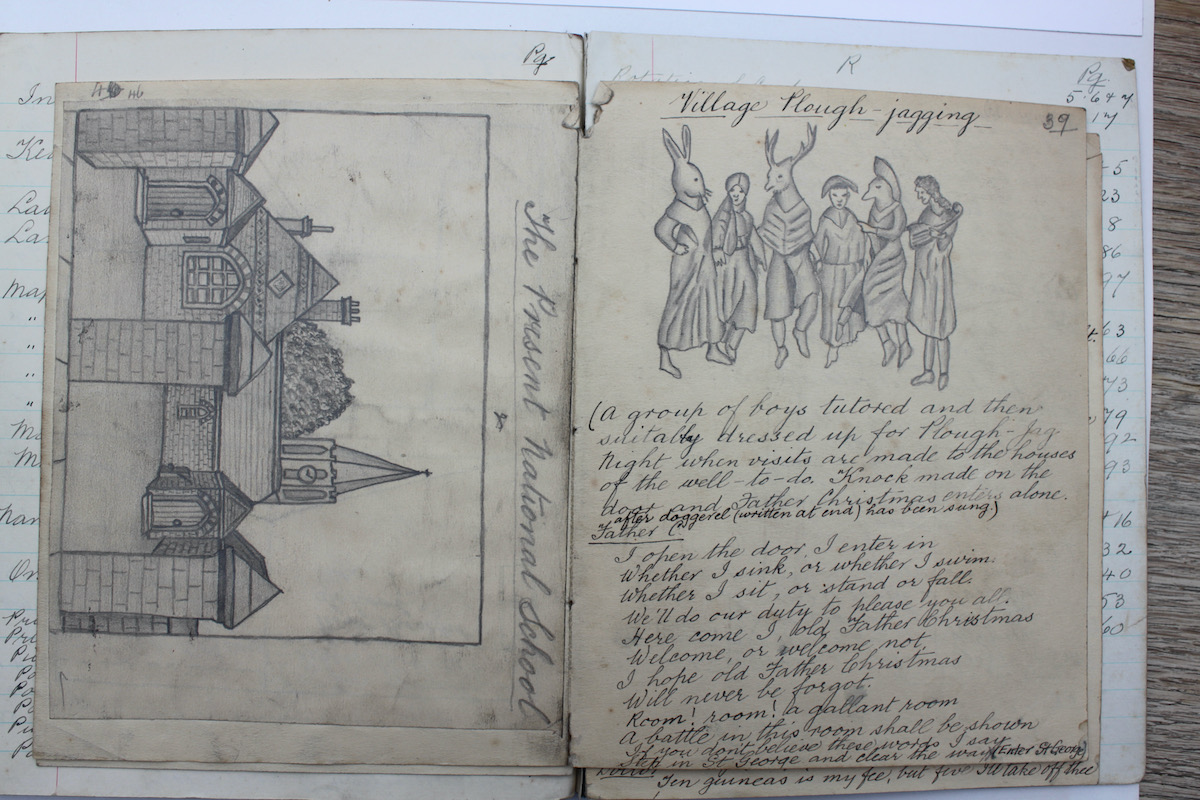 Pg.
46
The Present National School
R
Pg.
5.6 & 7
17
Village Plough-jagging
39
(A group of boys tutored and then
suitably dressed up for Plough-jag-
Night when visits are made to the houses
of the well-to-do. Knock made on the
door and Father Christmas enters alone.
after doggerel (written at end) has been sung.)
Father C.
I open the door, I enter in
Whether I sink, or whether I swim.
Whether I sit, or stand or fall.
We'll do our duty to please you all.
Here come I, old Father Christmas
Welcome, or welcome not,
I hope old Father Christmas
Will never be forgot.
Room! room! a gallant room
A battle in this room shall be shown
If you don't believe these words I say
Step in St George and clear the way (Enter St George)
Ten guineas is my fee, but five I'll take off thee
In
La
La
Map
"
"
"
"
5
23
8
86
97
63
66
73
79
92
93
16
32
40
53
60